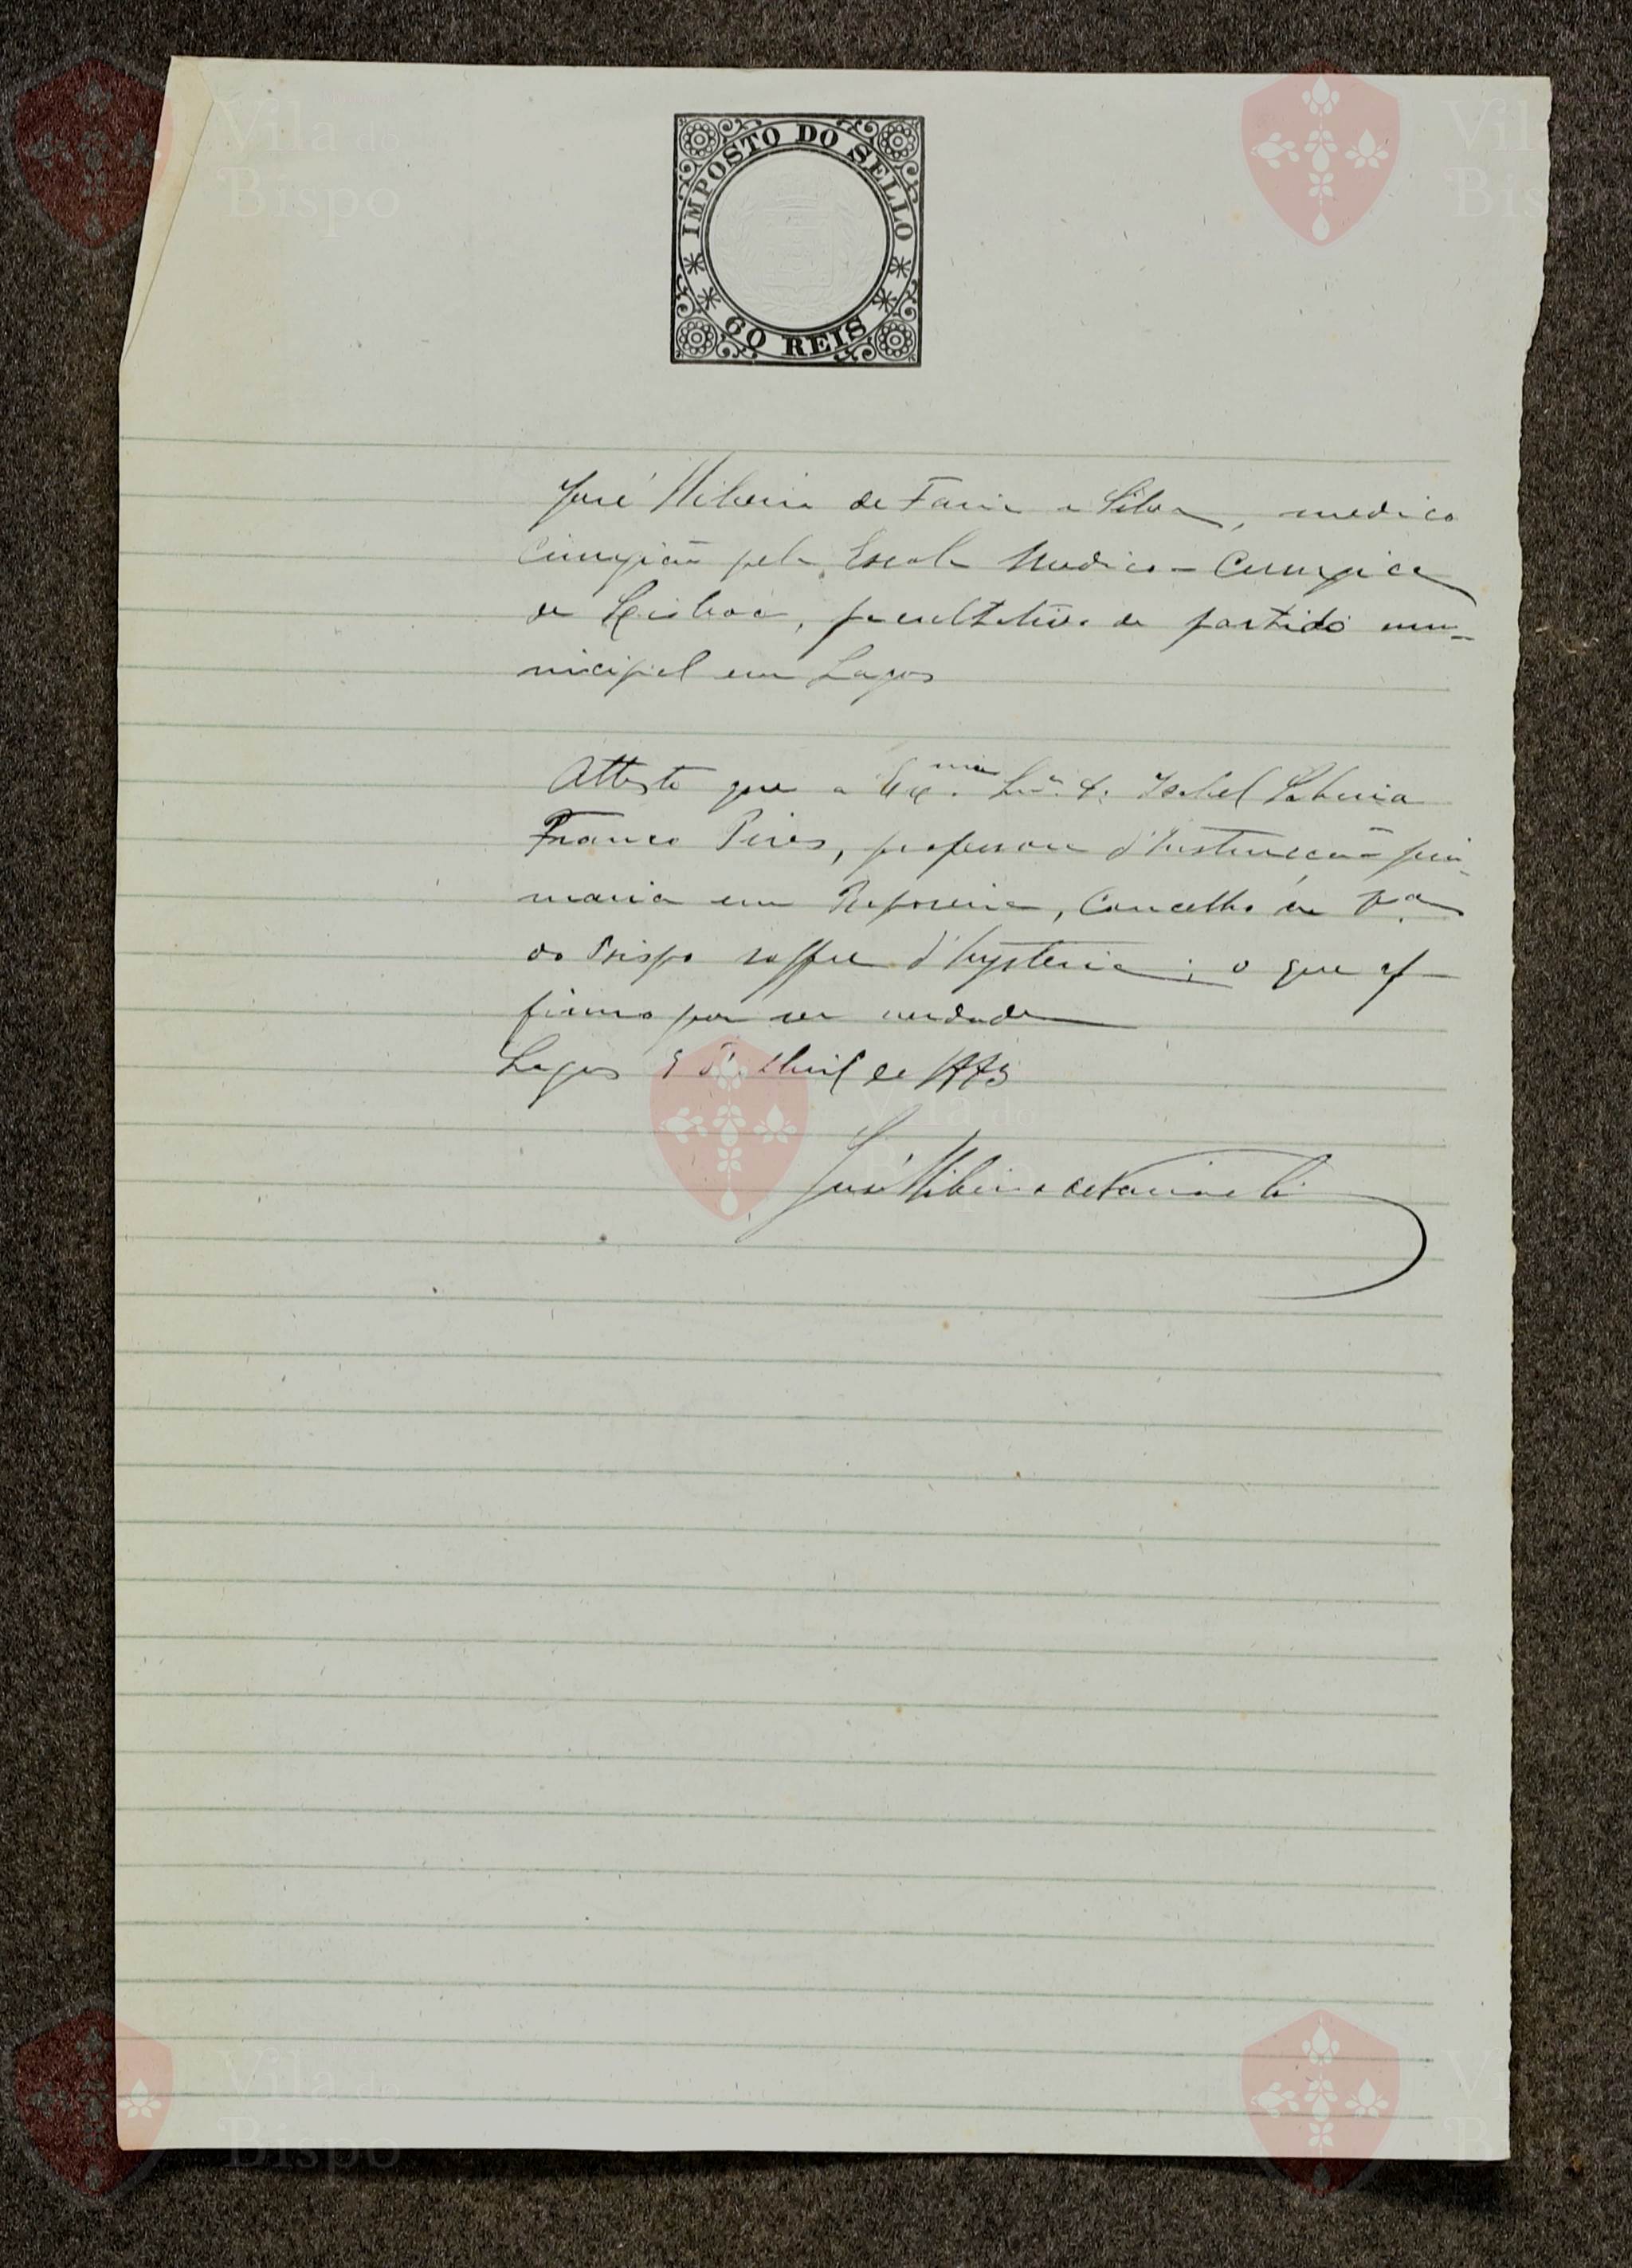 IMPOSTO DO SELLO
60 REIS
José Ribeiro de Faria e Silva, medico
Cirurgião pela Escola Medico-Cirurgica
de Lisboa, facultativo de partido mu-
nicipal em Lagos
Attesto que a Ex.ma Snr.ª D. Isabel
Franco Pires, professora d'instrucção pri-
maria em Raposeira, Concelho de Vª
do Bispo soffre d'hysteria; o que af-
firmo por ser verdade
Lagos Abril de
José Ribeiro de Faria e
Vila do Bispo
Vila do Bispo
Vila do Bispo
Vila do Bispo